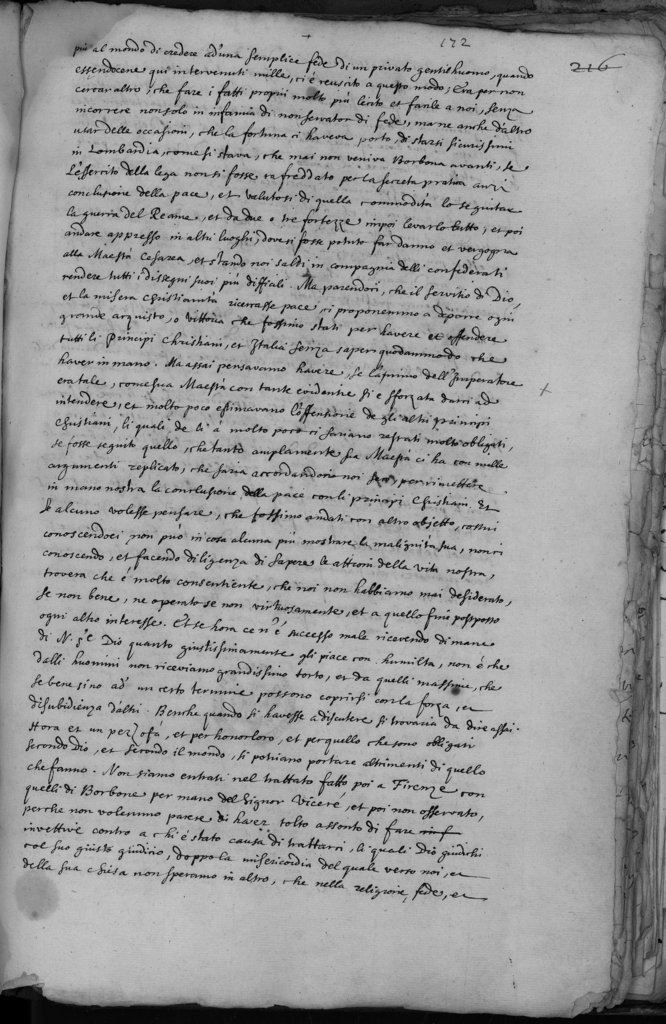 172
216
più al mondo di credere ad una semplice fede di un privato gentilhuomo, quando
essendocene qui intervenuti mille, ci è reuscito a questo modo; Era per non
cercar altro, che fare i fatti proprii molto più lecito et facile a noi, senza
incorrere non solo in infamia di non servator di fede, ma ne anche d'altro
usar delle occasioni, che la fortuna ci haveva porto, di starsi sicurissimi
in Lombardia, come si stava, che mai non veniva Borbona avanti, se
l'essercito della lega non si fosse raffreddato per la secreta pratica anzi
conclusione della pace, et valutosi di quella commodità lo seguitar
la guerra del Reame, et da due o tre fortezze in poi levarlo tutto, et poi
andare appresso in altri luoghi, dove si fosse potuto far danno et vergogna
alla Maestà Cesarea, et stando noi saldi in compagnia delli confederati
rendere tutti i dissegni suoi più difficili. Ma parendoci, che il servitio di Dio,
et la misera Christianità ricercasse pace, ci proponemmo a deporre ogni
grande acquisto, o vittoria che fossimo stati per havere et offendere
tutti li Principi Christiani, et Italia senza saper quodammodo che
haver in mano. Ma assai pensavamo havere, se l'animo dell'Imperatore
era tale, come sua Maestà con tante evidentie si è sforzata darci ad
intendere, et molto poco estimavamo l'offensione de gli altri principi
Christiani, li quali de lì à molto poco ci sariano restati molto obligati,
se fosse seguito quello, che tanto amplamente sua Maestà ci ha con mille
argumenti replicato, che saria accordandone noi per rimettere
in mano nostra la conclusione della pace con li principi Christiani. Et
se alcuno volesse pensare, che fossimo andati con altro obietto, costui
conoscendoci non può in cosa alcuna più mostrare la malignità sua, non ci
conoscendo, et facendo diligenza di sapere le attioni della vita nostra,
trovera che è molto consentiente, che noi non habbiamo mai desiderato,
se non bene, ne operato se non virtuosamente, et a quello fine postposto
ogni altro interesse. Et se hora ce n'è successo male ricevendo di mano
di N. S.re Dio quanto giustissimamente gli piace con humiltà, non è che
dalli huomini non riceviamo grandissimo torto, et da quelli massime, che
se bene sino ad un certo termine possono coprirsi con la forza, et
disubidienza d'altri. Benche quando si havesse a discutere si trovaria da dire assai.
Hora et un pezzo fa, et per honor loro, et per quello che sono obligati
secondo Dio, et secondo il mondo, si potriano portare altrimenti di quello
che fanno. Non siamo entrati nel trattato fatto poi a Firenze con
quelli di Borbone per mano del Signor Vicere, et poi non osservato,
perche non volemmo parere di haver tolto assonto di fare
invettive contro a chi è stato causa di trattarci, li quali Dio giudichi
col suo giusto giudicio, doppo la misericordia del quale verso noi, et
della sua chiesa non speramo in altro, che nella religione, fede, et